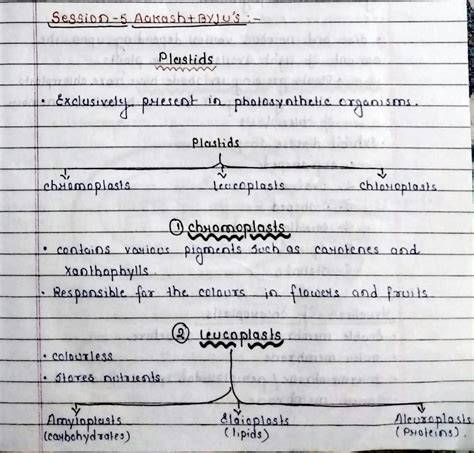 Session-5 Aakash+BYJU's :-
Plastids
• Exclusively present in photosynthetic organisms.
Plastids
chromoplasts leucoplasts chloroplasts
① chromoplasts
• contains various pigments such as carotenes and
xanthophylls.
• Responsible for the colours in flowers and fruits
② leucoplasts
• colourless
• stores nutrients
Amyloplasts Elaioplasts Aleuroplasts
(carbohydrates) (lipids) (Proteins).